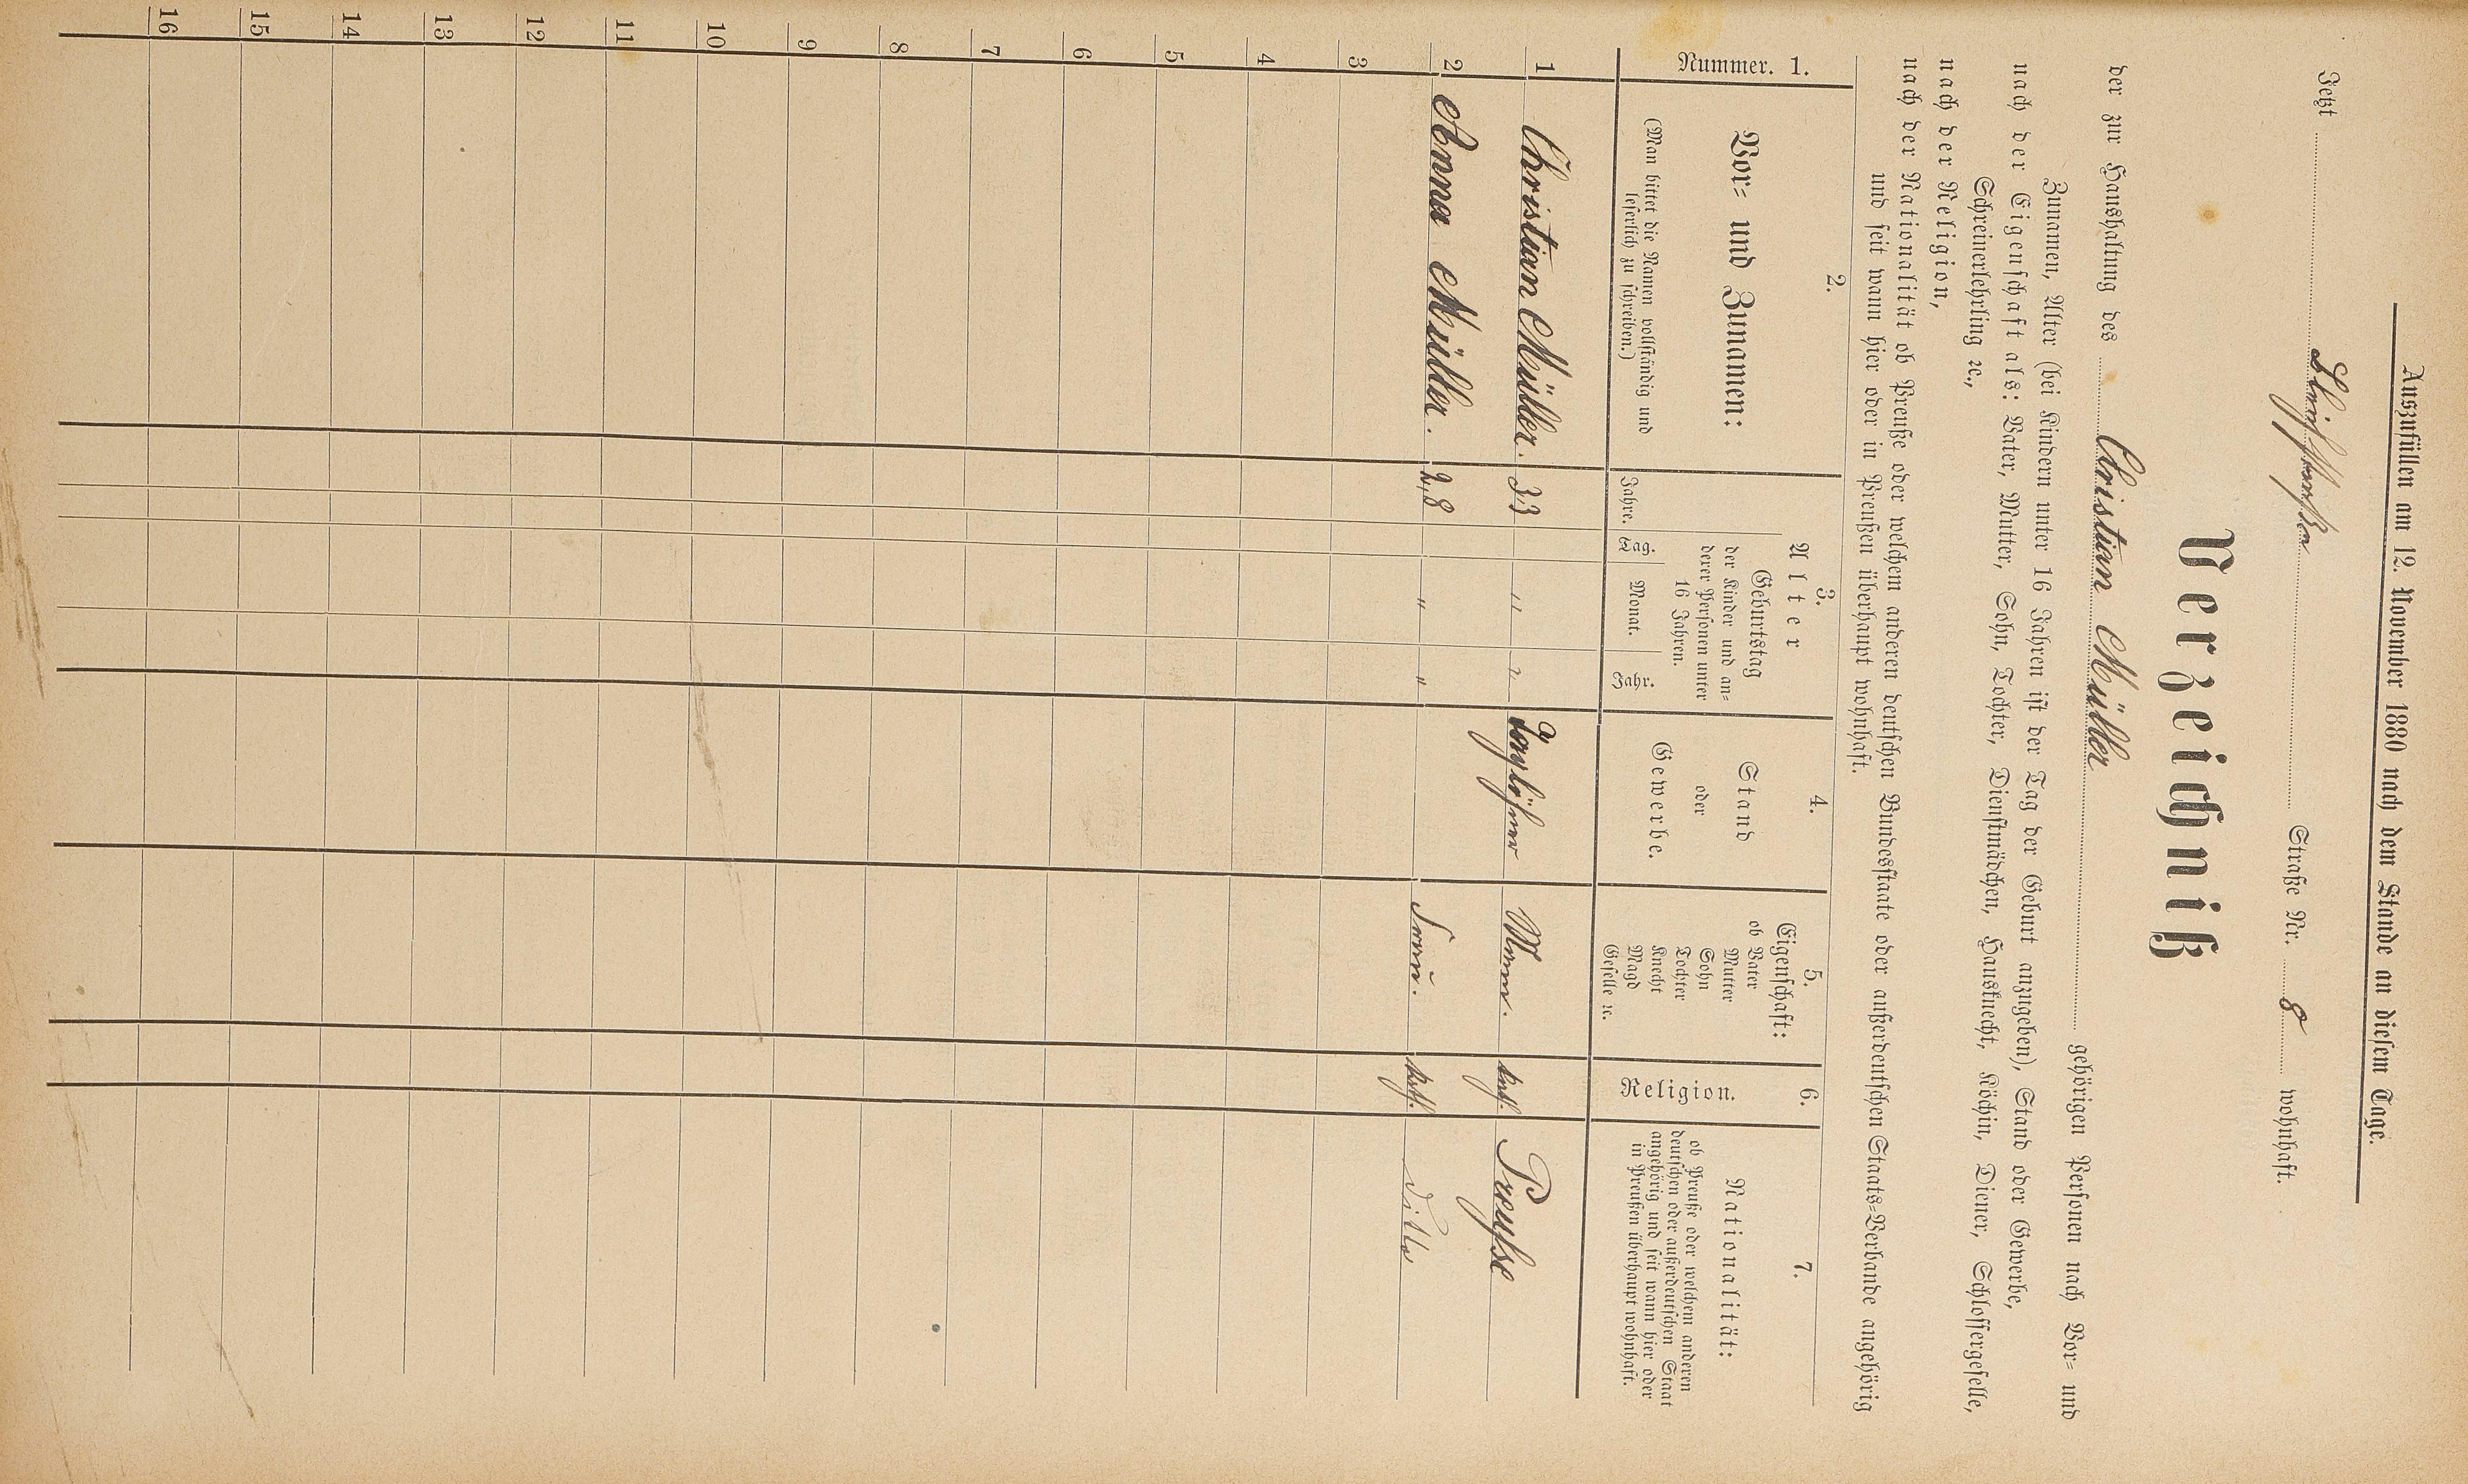 Auszufüllen am 12. November 1880 nach dem Stande an diesem Tage.
Jetzt Straße Nr. 8 wohnhaft.
Verzeichniß
der zur Haushaltung des Christian Müller gehörigen Personen nach Vor- und
Zunamen, Alter (bei Kindern unter 16 Jahren ist der Tag der Geburt anzugeben), Stand oder Gewerbe,
nach der Eigenschaft als: Vater, Mutter, Sohn, Tochter, Dienstmädchen, Hausknecht, Köchin, Diener, Schlossergeselle,
Schreinerlehrling ꝛc.,
nach der Religion,
nach der Nationalität ob Preuße oder welchem anderen deutschen Bundesstaate oder außerdeutschen Staats-Verbande angehörig
und seit wann hier oder in Preußen überhaupt wohnhaft.
1.
Nummer.
2.
Vor- und Zunamen:
(Man bittet die Namen vollständig und
leserlich zu schreiben.)
3.
Alter
Jahre.
Geburtstag
der Kinder und an-
derer Personen unter
16 Jahren.
Tag. Monat. Jahr.
4.
Stand
oder
Gewerbe.
5.
Eigenschaft:
ob Vater
Mutter
Sohn
Tochter
Knecht
Magd
Geselle ꝛc.
6.
Religion.
7.
Nationalität:
ob Preuße oder welchem anderen
deutschen oder außerdeutschen Staat
angehörig und seit wann hier oder
in Preußen überhaupt wohnhaft.
1 Christian Müller. 33 " " Taglöhner Mann. kath. Preußse
2 Anna Müller. 28 " " Frau. kath. ditto
3
4
5
6
7
8
9
10
11
12
13
14
15
16